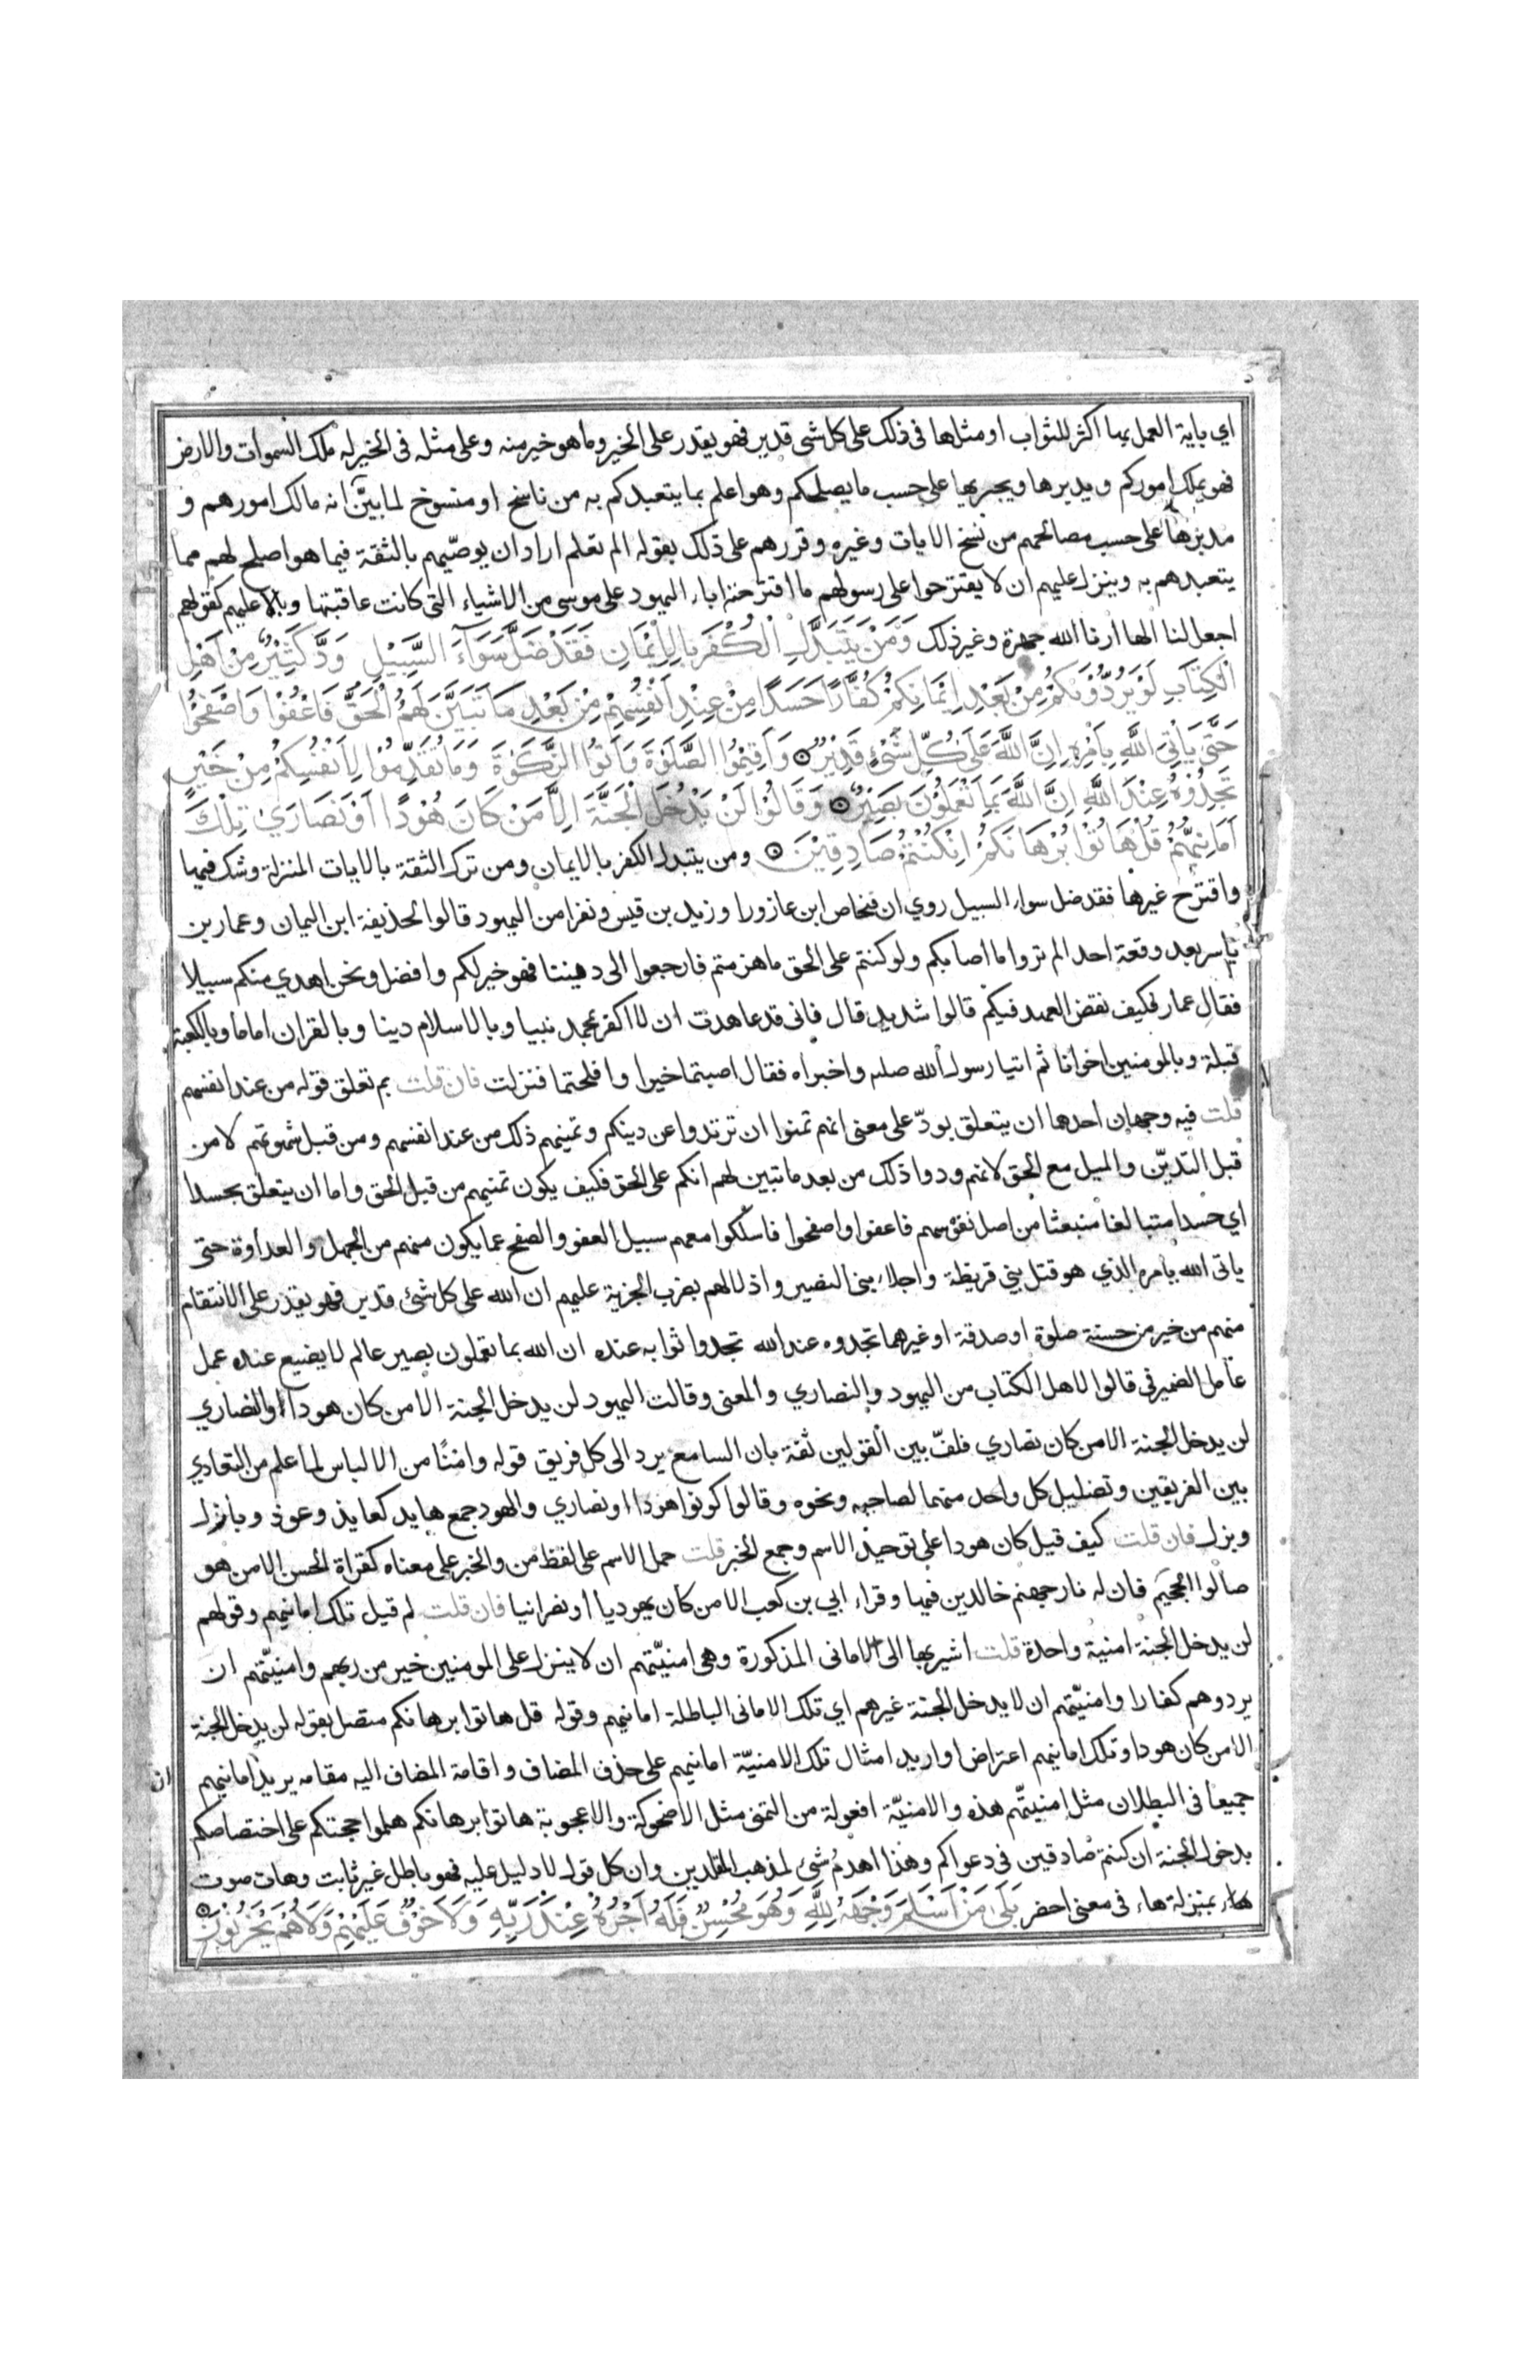 اي باية العمل بها اكثر للثواب او مثلها في ذلك على كل شى قدير فهو يقدر على الخير وما هو خير منه وعلى مثله في الخير له ملك السموات والارض
فهو يملك اموركم ويدبرها ويجريها على حسب ما يصلحكم وهو اعلم بما يتعبدكم به من ناسخ او منسوخ لما بيّن انه مالك امورهم و
مدبرها على حسب مصالحهم من نسخ الايات وغيره وقررهم على ذلك بقوله الم تعلم اراد ان يوصّيهم بالثقة فيما هو اصلح لهم مما
يتعبدهم به وينزل عليهم ان لا يقترحوا على رسولهم ما اقترحته اباء اليهود على موسى من الاشياء التي كانت عاقبتها وبالا عليهم كقولهم
اجعل لنا الها ارنا الله جهرة وغير ذلك وَمَنْ يَتَبَدَّلِ الْكُفْرَ بِالْاِيْمَانِ فَقَدْ ضَلَّ سَوَآءَ السَّبِيْلِ وَدَّ كَثِيْرٌ مِنْ اَهْلِ
الْكِتَابِ لَوْ يَرُدُّوْنَكُمْ مِنْ بَعْدِ اِيْمَانِكُمْ كُفَّارًا حَسَدًا مِنْ عِنْدِ اَنْفُسِهِمْ مِنْ بَعْدِ مَا تَبَيَّنَ لَهُمُ الْحَقُّ فَاعْفُوْا وَاصْفَحُوْا
حَتّٰى يَاْتِيَ اللّٰهُ بِاَمْرِهِ اِنَّ اللّٰهَ عَلٰى كُلِّ شَىْءٍ قَدِيْرٌ وَاَقِيْمُوا الصَّلٰوةَ وَاٰتُوا الزَّكٰوةَ وَمَا تُقَدِّمُوْا لِاَنْفُسِكُمْ مِنْ خَيْرٍ
تَجِدُوْهُ عِنْدَ اللّٰهِ اِنَّ اللّٰهَ بِمَا تَعْمَلُوْنَ بَصِيْرٌ وَقَالُوْا لَنْ يَدْخُلَ الْجَنَّةَ اِلَّا مَنْ كَانَ هُوْدًا اَوْ نَصَارٰى تِلْكَ
اَمَانِيُّهُمْ قُلْ هَاتُوْا بُرْهَانَكُمْ اِنْ كُنْتُمْ صَادِقِيْنَ ومن يتبدل الكفر بالايمان ومن ترك الثقة بالايات المنزلة وشك فيها
واقترح غيرها فقد ضل سواء السبيل روي ان فنحاص ابن عازورا وزيد بن قيس ونفرا من اليهود قالوا لحذيفة ابن اليمان وعمار بن
ياسر بعد وقعة احد الم تروا ما اصابكم ولو كنتم على الحق ما هزمتم فارجعوا الى ديننا فهو خير لكم وافضل ونحن اهدي منكم سبيلا
فقال عمار فكيف نقض العهد فيكم قالوا شديد قال فاني قد عاهدت ان لا اكفر بمحمد نبيا وبالاسلام دينا وبالقران اماما وبالكعبة
قبلة وبالمومنين اخوانا ثم اتيا رسول الله صلم واخبراه فقال اصبتما خيرا وافلحتما فنزلت فان قلت بم تعلق قوله من عند انفسهم
قلت فيه وجهان احدها ان يتعلق بودّ على معنى انهم تمنوا ان ترتدوا عن دينكم وتمنيهم ذلك من عند انفسهم ومن قبل شهوتهم لا من
قبل التديّن والميل مع الحق لانهم ودوا ذلك من بعد ما تبين لهم انكم على الحق فكيف يكون تمنيهم من قبل الحق واما ان يتعلق بحسدا
اي حسدا متبالغا منبعثا من اصل نفوسهم فاعفوا واصفحوا فاسلكوا معهم سبيل العفو والصفح عما يكون منهم من الجهل والعداوة حتى
ياتى الله بامره الذي هو قتل بني قريظة واجلاء بنى النضير واذلالهم بضرب الجزية عليهم ان الله على كل شئ قدير فهو يقدر على الانتقام
منهم من خير من حسنة صلوة او صدقة او غيرهما تجدوه عند الله تجدوا ثوابه عنده ان الله بما تعملون بصير عالم لا يضيع عنده عمل
عامل الضمير في قالوا لاهل الكتاب من اليهود والنصاري والمعنى وقالت اليهود لن يدخل الجنة الا من كان هودا والنصاري
لن يدخل الجنة الا من كان نصاري فلفّ بين القولين ثقة بان السامع يرد الى كل فريق قوله وامنًا من الالباس لما علم من التعادي
بين الفريقين وتضليل كل واحد منهما لصاحبه ونحوه وقالوا كونوا هودا او نصاري والهود جمع هايد كعايذ وعوذ وبازل
وبزل فان قلت كيف قيل كان هودا على توحيد الاسم وجمع الخبر قلت حمل الاسم على لفظ من والخبر على معناه كقراة الحسن الا من هو
صالوا الجحيم فان له نار جهنم خالدين فيها وقراء ابي بن كعب الا من كان يهوديا أو نصرانيا فان قلت لم قيل تلك امانيهم وقولهم
لن يدخل الجنة امنية واحدة قلت اشير بها الى الاماني المذكورة وهى امنيّتهم ان لا ينزل على المومنين خير من ربهم وامنيّتهم ان
يردوهم كفارا وامنيّتهم ان لا يدخل الجنة غيرهم اي تلك الاماني الباطلة امانيهم وقوله قل هاتوا برهانكم متصل بقوله لن يدخل الجنة
الا من كان هودا وتلك امانيهم اعتراض او اريد امثال تلك الامنيّة امانيهم على حذف المضاف واقامة المضاف اليه مقامه يريد امانيهم
ان
جميعا في البطلان مثل امنيتّهم هذه والامنيّة افعولة من التمني مثل الاضحوكة والاعجوبة هاتوا برهانكم هلموا حجتكم على اختصاصكم
بدخول الجنة ان كنتم صادقين في دعواكم وهذا اهدم شئ لمذهب المقلدين وان كل قول لا دليل عليه فهو باطل غير ثابت وهات صوت
هاء بمنزلة هاء في معنى احضر بَلٰى مَنْ اَسْلَمَ وَجْهَهُ لِلّٰهِ وَهُوَ مُحْسِنٌ فَلَهُ اَجْرُهُ عِنْدَ رَبِّهِ وَلَا خَوْفٌ عَلَيْهِمْ وَلَا هُمْ يَحْزَنُوْنَ